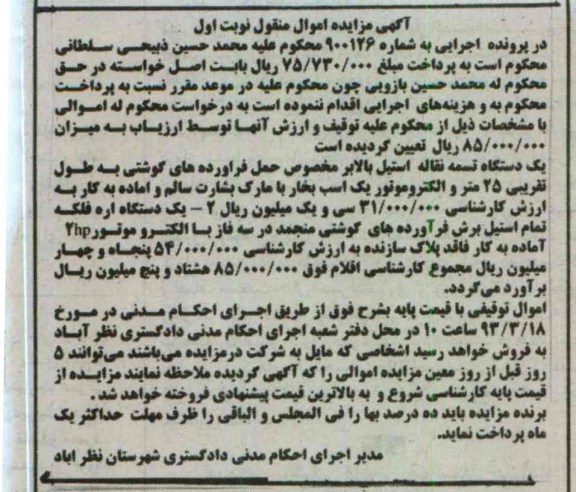 آگهی مزایده اموال منقول نوبت اول
در پرونده اجرایی به شماره ۹۰۰۱۲۶ محکوم علیه محمد حسین ذبیحی سلطانی
محکوم است به پرداخت مبلغ ۷۵/۷۳۰/۰۰۰ ریال بابت اصل خواسته در حق
محکوم له محمد حسین بازویی چون محکوم علیه در موعد مقرر نسبت به پرداخت
محکوم به و هزینه‌های اجرایی اقدام ننموده است به درخواست محکوم له اموالی
با مشخصات ذیل از محکوم علیه توقیف و ارزش آنها توسط ارزیاب به میزان
۸۵/۰۰۰/۰۰۰ ریال تعیین گردیده است
یک دستگاه تسمه نقاله استیل بالابر مخصوص حمل فراورده های گوشتی به طول
تقریبی ۲۵ متر و الکتروموتور یک اسب بخار با مارک بشارت سالم و اماده به کار به
ارزش کارشناسی ۳۱/۰۰۰/۰۰۰ سی و یک میلیون ریال ۲ – یک دستگاه اره فلکه
تمام استیل برش فرآورده های گوشتی منجمد در سه فاز با الکترو موتور ۲hp
آماده به کار فاقد پلاک سازنده به ارزش کارشناسی ۵۴/۰۰۰/۰۰۰ پنجاه و چهار
میلیون ریال مجموع کارشناسی اقلام فوق ۸۵/۰۰۰/۰۰۰ هشتاد و پنج میلیون ریال
برآورد می‌گردد.
اموال توقیفی با قیمت پایه بشرح فوق از طریق اجرای احکام مدنی در مورخ
۹۳/۳/۱۸ ساعت ۱۰ در محل دفتر شعبه اجرای احکام مدنی دادگستری نظر آباد
به فروش خواهد رسید اشخاصی که مایل به شرکت درمزایده می‌باشند می‌توانند ۵
روز قبل از روز معین مزایده اموالی را که آگهی گردیده ملاحظه نمایند مزایده از
قیمت پایه کارشناسی شروع و به بالاترین قیمت پیشنهادی فروخته خواهد شد .
برنده مزایده باید ده درصد بها را فی المجلس و الباقی را ظرف مهلت حداکثر یک
ماه پرداخت نماید.
مدیر اجرای احکام مدنی دادگستری شهرستان نظر اباد